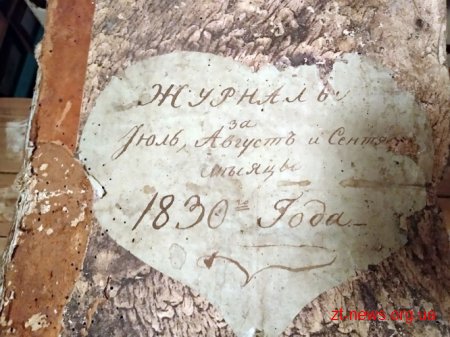 ЖУРНАЛЪ
за
Іюль, Августъ и Сентяб
мѣсяцы
1830го Года
zt.news.org.ua